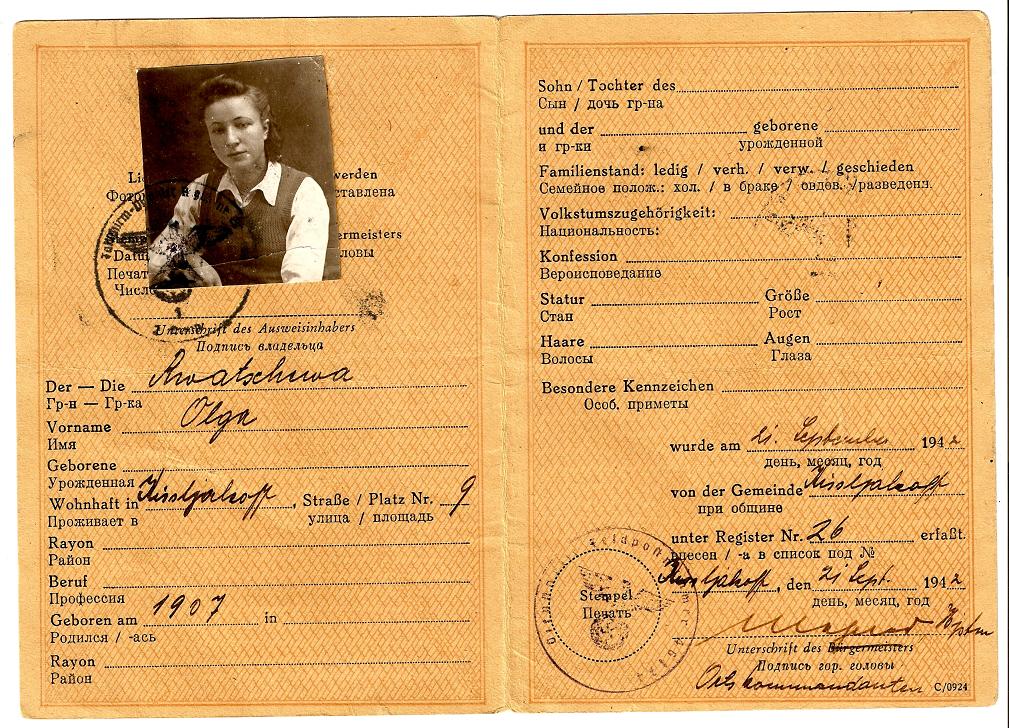 Lic
werden
Фотог
ставлена
ermeisters
Datu
ловы
Печат
Число
Unterschrift des Ausweisinhabers
Подпись владельца
Der — Die
Гр-н — Гр-ка
Vorname Olga
Имя
Geborene
Урожденная
Wohnhaft in Kissljakoff, Straße / Platz Nr. 9
Проживает в улица / площадь
Rayon
Район
Beruf
Профессия
Geboren am 1907 in
Родился / -ась
Rayon
Район
Sohn / Tochter des
Сын / дочь гр-на
und der geborene
и гр-ки урожденной
Familienstand: ledig / verh. / verw. / geschieden
Семейное полож.: хол. / в браке / овдов. /разведенн.
Volkstumszugehörigkeit:
Национальность:
Konfession
Вероисповедание
Statur Größe
Стан Рост
Haare Augen
Волосы Глаза
Besondere Kennzeichen
Особ. приметы
wurde am 21. September 1942
день, месяц, год
von der Gemeinde Kissljakoff
при общине
unter Register Nr. 26 erfaßt.
внесен / -а в список под №
Kissljakoff, den 21 Sept. 1942
день, месяц, год
Feldpost
Stempel
Печать
Unterschrift des Bürgermeisters
Подпись гор. головы
Ortskommandanten C/0924